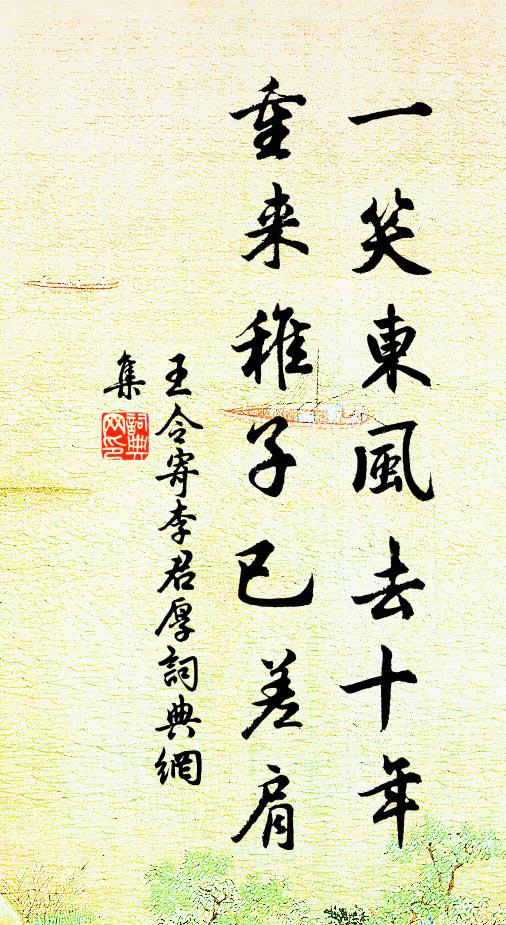 一笑東風去十年
重来稚子已差肩
王令寄李君厚詞典網
集
詞典
网印